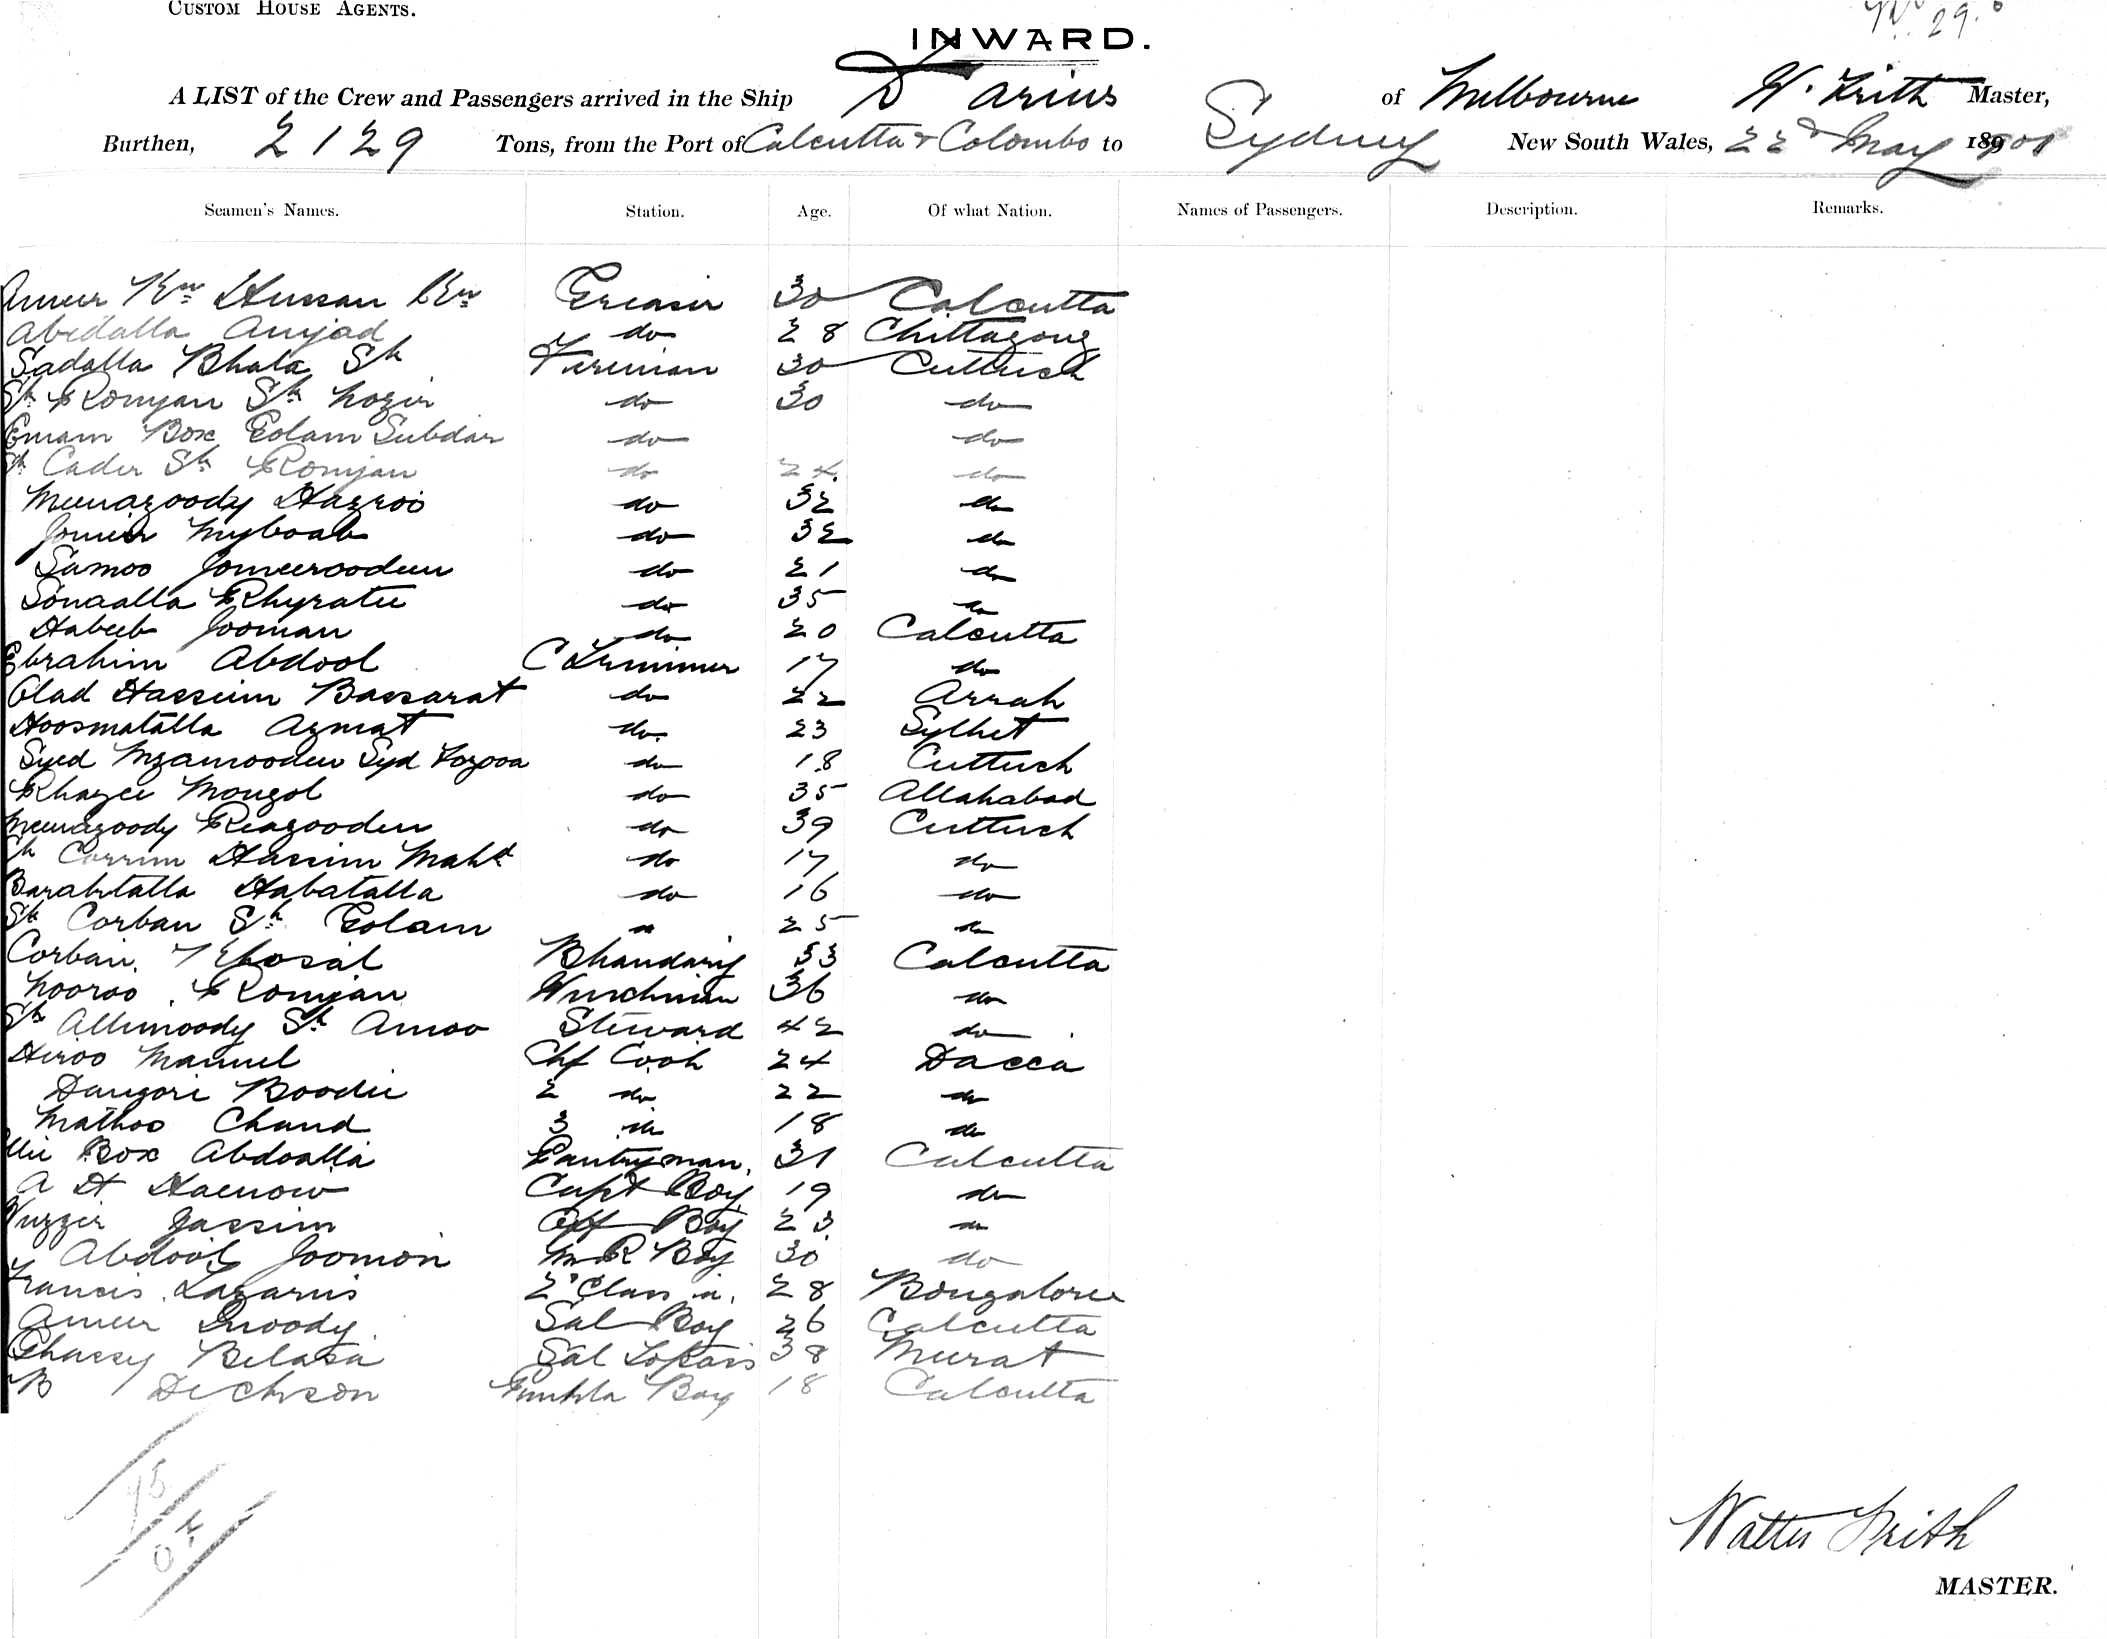 CUSTOM HOUSE AGENTS.
29
INWARD.
A LIST of the Crew and Passengers arrived in the Ship Darius of Melbourne W. Frith Master,
Burthen, 2129 Tons, from the Port of Calcutta & Colombo to Sydney New South Wales, 22d May 1901
Seamen's Names. Station. Age. Of what Nation. Names of Passengers. Description. Remarks.
Ameer Hussan Greaser 30 Calcutta
Abdalla Amjad do 28 Chittagong
Sadalla Bhala Sk Fireman 30 Cuttuck
Sk Romjan Sk Nozir do 30 do
Emam Box Golam Subdar do do
Sk Cader Sk Romjan do 24 do
Meeuazoody Hazroo do 32 do
Jomeer Myboab do 32 do
Samoo Jomeeroodeen do 21 do
Sonaalla Khyratee do 35 do
Habeeb Jooman do 20 Calcutta
Ebrahim Abdool C Trimmer 17 do
Olad Hasseim Bassarat do 22 Arrah
Hoosmatalla Azmat do. 23 Sylhet
Syed Nzamooden Syd do 18 Cuttuck
Khazee Mongol do 35 Allahabad
Meeuazoody Reazooden do 39 Cuttuck
Sk Corrim Hassim Mahd do 17 do
Barahtalla Habatalla do 16 do
Sk Corban Sk Golam do 25 do
Corban Bhandary 33 Calcutta
Nooroo Romjan Winchman 36 do
Sk Allimoody Sk Amoo Steward 42 do
Heroo Manuel Chf Cook 24 Dacca
Dangori Boodie 2 do 22 do
Mathoo Chand 3 do 18 do
Box Abdoalla Pantryman. 31 Calcutta
A H Capt Boy 19 do
Wuzzir Jassim Off Boy 23 do
Abdool Joomon M R Boy 30 do
Francis Lazarus 2 Class 28 Bongalore
Ameer Sal Boy 26 Calcutta
Ghassy Belasa Sal Topass 38 Meerat
B Dickson Boy 18 Calcutta
Walter Frith
MASTER.